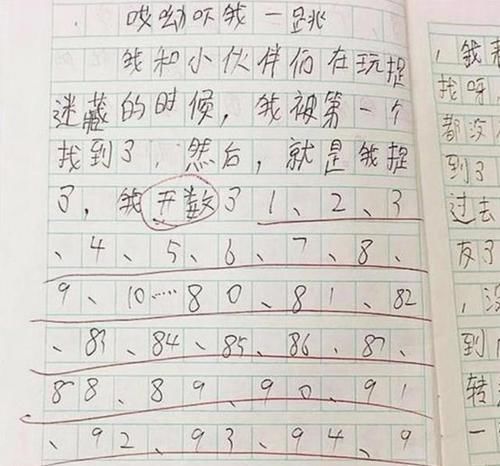 哎呦吓我一跳
我和小伙伴们在玩捉
迷藏的时候，我被第一个
找到了，然后，就是我捉
了，我开数了1、2、3
、4、5、6、7、8、
9、10……80、81、82
、83、84、85、86、87、
88、89、90、91
、92、93、94、9
，我
找呀
都没
到了
过去
友了
，没
到
转
一